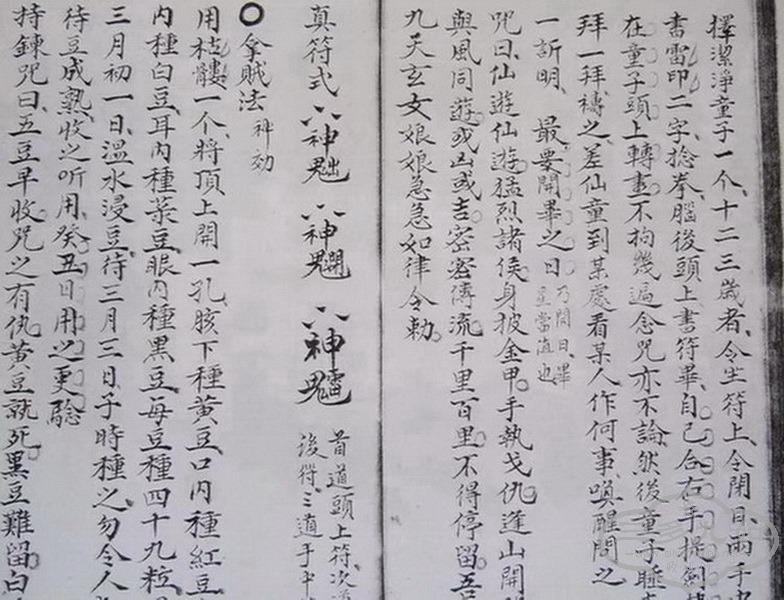 擇潔淨童子一个、十二三歲者、令坐符上、令閉目、兩千
書雷印二字、捻拳、腦後頭上書符畢、自己合右手提劍
在童子頭上轉畫、不拘幾遍、念咒亦不論、然後童子睡
拜一拜、禱之、差仙童到某處看某人作何事、喚醒問之
一訢明、 最要開畢之日 乃開日、畢
星當值也
咒曰、仙遊仙遊、猛烈諸侯、身披金甲、手執戈仇、逢山開
與風同遊、或凶或吉、密密傳流、千里百里、不得停留、吾
九天玄女娘娘急急如律令勅。
真符式 首道頭上符、次道
後符、三道手中
○拿賊法 神効
用枯髏一个、將頂上開一孔、胲下種黃豆、口内種紅豆
内種白豆、耳内種菉豆、眼内種黑豆、每豆種四十九粒、
三月初一日、温水浸豆、待三月三日子時種之、勿令人
待豆成熟、收之听用、癸丑日用之更驗
持鍊咒曰、五豆早收、咒之有仇、黃豆就死、黑豆難留、白